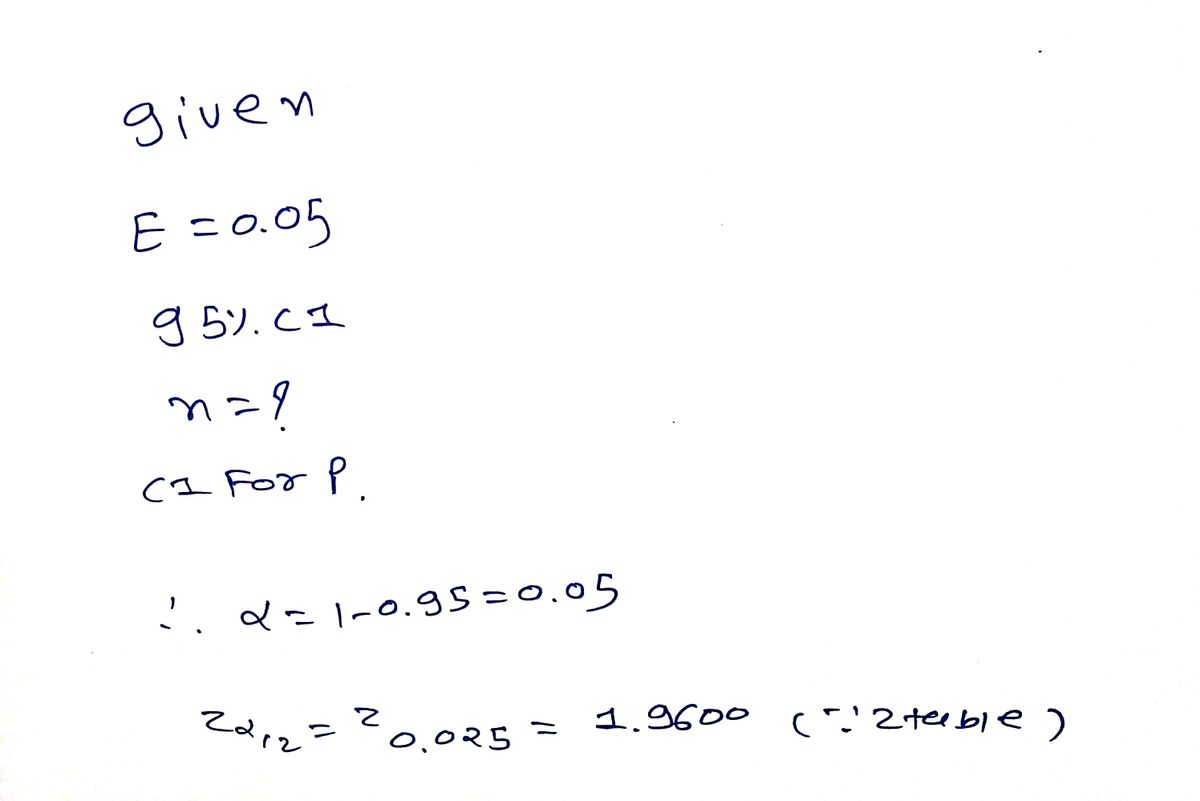 given
E = 0.05
95%. CI
n = ?
CI For P.
∴ α = 1-0.95 = 0.05
Zα/2 = Z0.025 = 1.9600 (∵ Z table)